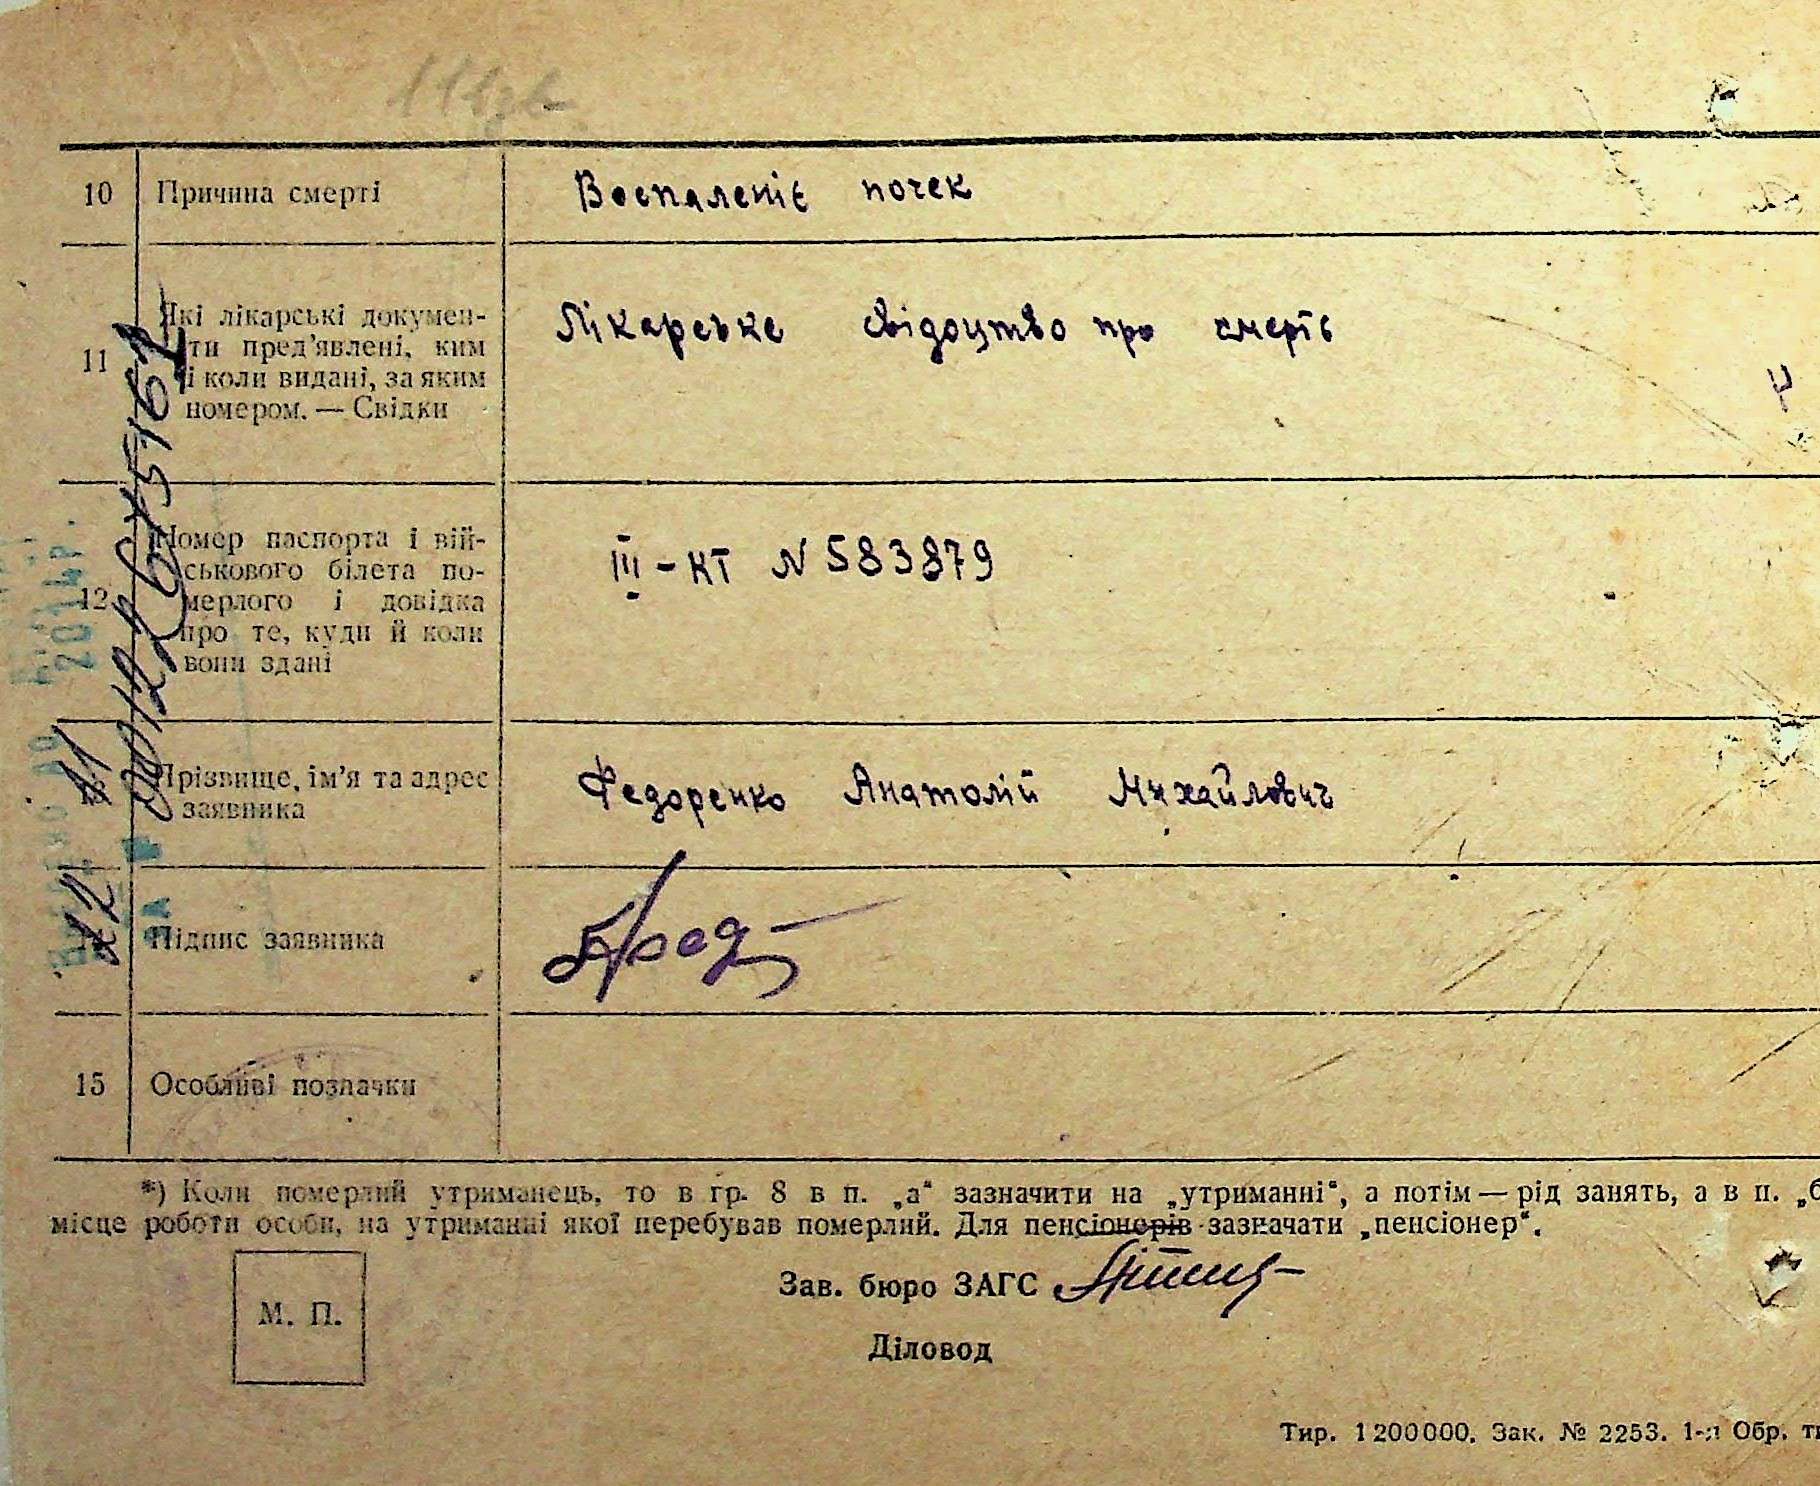 10 Причина смерті Воспаленіє почек
11 Які лікарські докумен-
ти пред'явлені, ким
і коли видані, за яким
номером. — Свідки
Лікарське свідоцтво про смерть
12 Номер паспорта і вій-
ськового білета по-
мерлого і довідка
про те, куди й коли
вони здані
III - КТ N 583879
Прізвище, ім'я та адрес
заявника
Федоренко Анатолій Михайлович
Підпис заявника
15 Особливі позначки
*) Коли померлий утриманець, то в гр. 8 в п. „а“ зазначити на „утриманні“, а потім — рід занять, а в п. „б
місце роботи особи, на утриманні якої перебував померлий. Для пенсіонерів зазначати „пенсіонер“.
Зав. бюро ЗАГС
М. П.
Діловод
Тир. 1200000. Зак. № 2253. 1-а Обр. ти